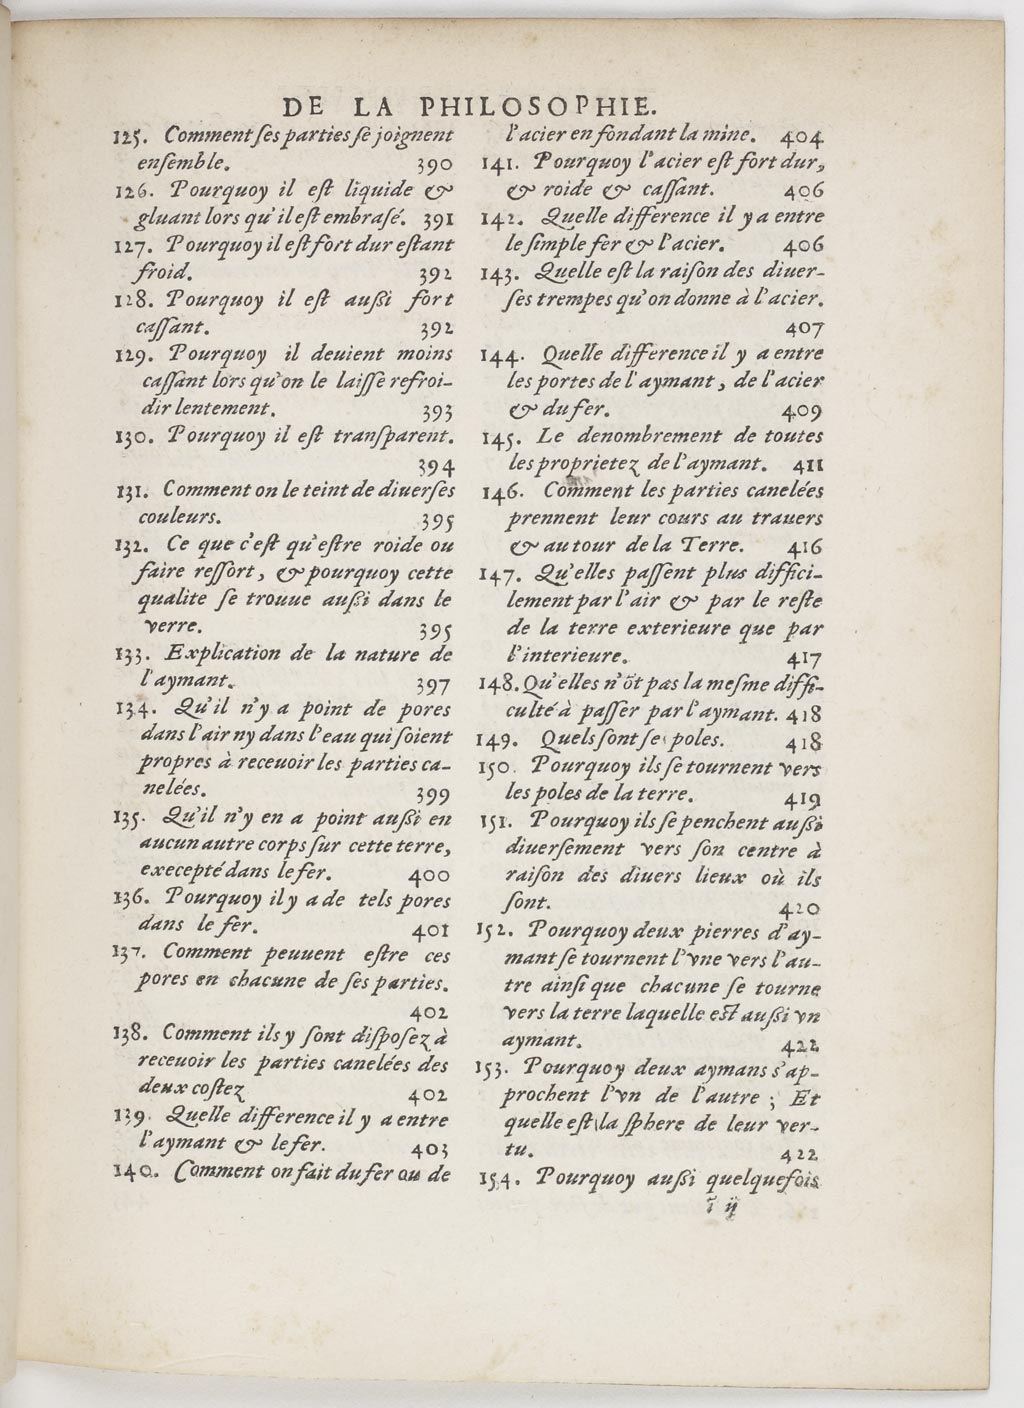 DE LA PHILOSOPHIE.
125. Comment ſes parties ſe joignent
enſemble. 390
126. Pourquoy il eſt liquide &
gluant lors qu'il eſt embraſé. 391
127. Pourquoy il eſt fort dur eſtant
froid. 392
128. Pourquoy il eſt auſſi fort
caſſant. 392
129. Pourquoy il deuient moins
caſſant lors qu'on le laiſſe refroi-
dir lentement. 393
130. Pourquoy il eſt tranſparent.
394
131. Comment on le teint de diuerſes
couleurs. 395
132. Ce que c'eſt qu'eſtre roide ou
faire reſſort, & pourquoy cette
qualite ſe trouue auſſi dans le
verre. 395
133. Explication de la nature de
l'aymant. 397
134. Qu'il n'y a point de pores
dans l'air ny dans l'eau qui ſoient
propres à receuoir les parties ca-
nelées. 399
135. Qu'il n'y en a point auſſi en
aucun autre corps ſur cette terre,
execepté dans le fer. 400
136. Pourquoy il y a de tels pores
dans le fer. 401
137. Comment peuuent eſtre ces
pores en chacune de ſes parties.
402
138. Comment ils y ſont diſpoſez à
receuoir les parties canelées des
deux coſtez 402
139. Quelle difference il y a entre
l'aymant & le fer. 403
140. Comment on fait du fer ou de
l'acier en fondant la mine. 404
141. Pourquoy l'acier eſt fort dur,
& roide & caſſant. 406
142. Quelle difference il y a entre
le ſimple fer & l'acier. 406
143. Quelle eſt la raiſon des diuer-
ſes trempes qu'on donne à l'acier.
407
144. Quelle difference il y a entre
les portes de l'aymant, de l'acier
& du fer. 409
145. Le denombrement de toutes
les proprietez de l'aymant. 411
146. Comment les parties canelées
prennent leur cours au trauers
& autour de la Terre. 416
147. Qu'elles paſſent plus diffici-
lement par l'air & par le reſte
de la terre exterieure que par
l'interieure. 417
148. Qu'elles n'õt pas la meſme diffi-
culté à paſſer par l'aymant. 418
149. Quels ſont ſe poles. 418
150. Pourquoy ils ſe tournent vers
les poles de la terre. 419
151. Pourquoy ils ſe penchent auſſi
diuerſement vers ſon centre à
raiſon des diuers lieux où ils
ſont. 420
152. Pourquoy deux pierres d'ay-
mant ſe tournent l'vne vers l'au-
tre ainſi que chacune ſe tourne
vers la terre laquelle eſt auſſi vn
aymant. 422
153. Pourquoy deux aymans s'ap-
prochent l'vn de l'autre ; Et
quelle eſt la ſphere de leur ver-
tu. 422
154. Pourquoy auſſi quelquefois
ĩ ij